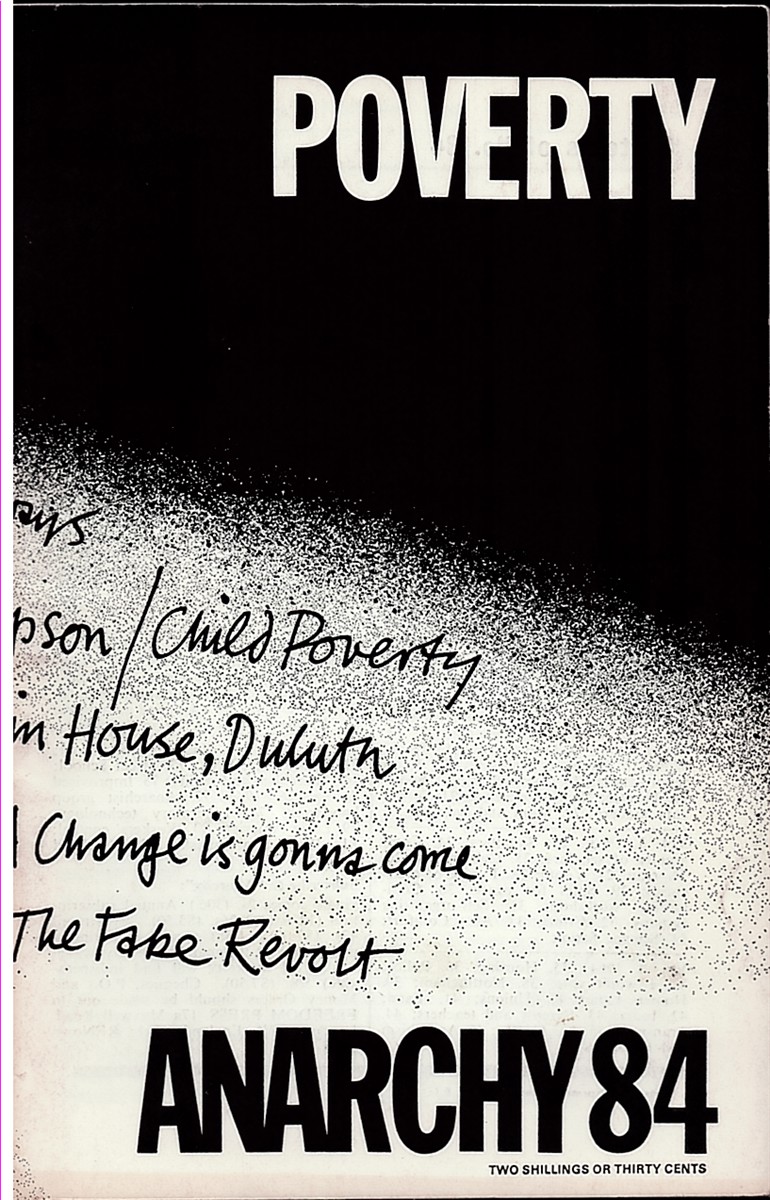 POVERTY
ays
pson / Child Poverty
in House, Duluth
Change is gonna come
The Fake Revolt
ANARCHY 84
TWO SHILLINGS OR THIRTY CENTS